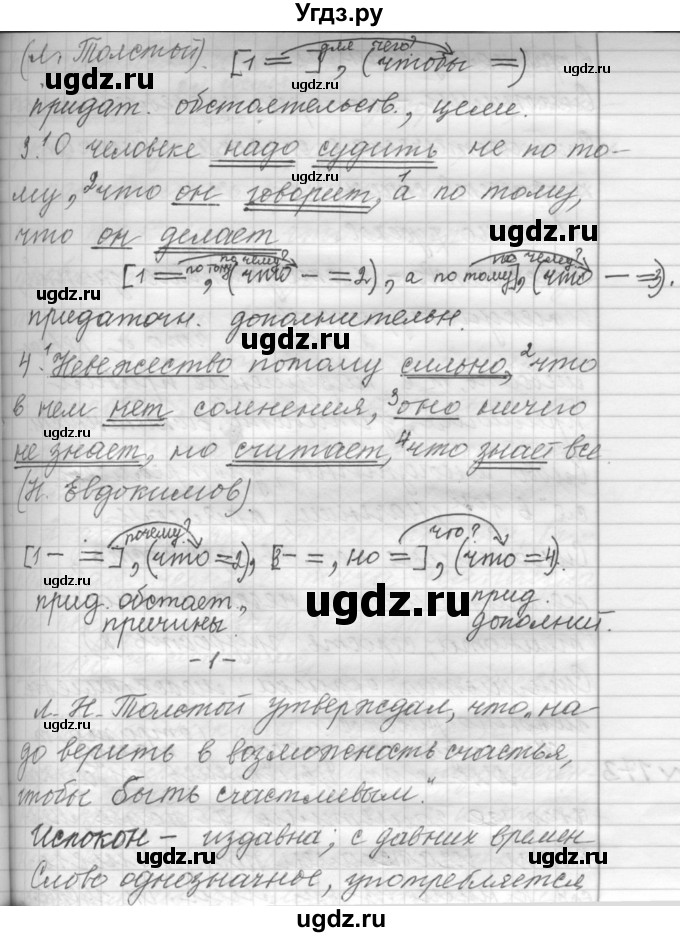 Угдз.ру
(Л. Толстой). [1 = ], (чтобы =)
для чего?
придат. обстоятельств., цели.
3. ¹О человеке надо судить не по то-
му, ²что он говорит, ¹а по тому,
что он делает
[1 = по тому, (что – = 2), а по тому], (что – = 3).
по чему? по чему?
придаточн. дополнительн.
4. ¹Невежество потому сильно, ²что
в нем нет сомнения, ³оно ничего
не знает, но считает, ⁴что знает все
(И. Евдокимов).
почему? что?
[1 – = ], (что = 2), [3 – =, но = ], (что = 4).
прид. обстоят., прид.
причины. дополнит.
– 1 –
Л. Н. Толстой утверждал, что „на-
до верить в возможность счастья,
чтобы быть счастливым."
Испокон – издавна; с давних времен
Слово однозначное, употребляется
ugdz.ru